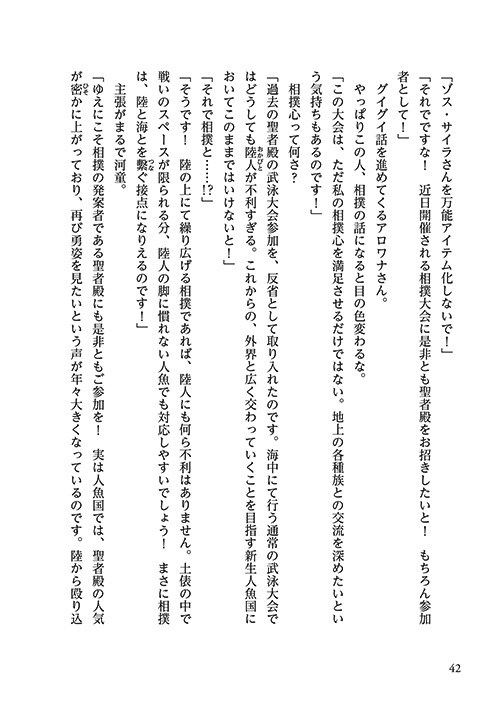 「ゾス・サイラさんを万能アイテム化しないで！」
「それでですな！　近日開催される相撲大会に是非とも聖者殿をお招きしたいと！　もちろん参加
者として！」
　グイグイ話を進めてくるアロワナさん。
　やっぱりこの人、相撲の話になると目の色変わるな。
「この大会は、ただ私の相撲心を満足させるだけではない。地上の各種族との交流を深めたいとい
う気持ちもあるのです！」
　相撲心って何さ？
「過去の聖者殿の武泳大会参加を、反省として取り入れたのです。海中にて行う通常の武泳大会で
はどうしても陸人が不利すぎる。これからの、外界と広く交わっていくことを目指す新生人魚国に
おいてこのままではいけないと！」
「それで相撲と……!?」
「そうです！　陸の上にて繰り広げる相撲であれば、陸人にも何ら不利はありません。土俵の中で
戦いのスペースが限られる分、陸人の脚に慣れない人魚でも対応しやすいでしょう！　まさに相撲
は、陸と海とを繋ぐ接点になりえるのです！」
　主張がまるで河童。
「ゆえにこそ相撲の発案者である聖者殿にも是非ともご参加を！　実は人魚国では、聖者殿の人気
が密かに上がっており、再び勇姿を見たいという声が年々大きくなっているのです。陸から殴り込
42